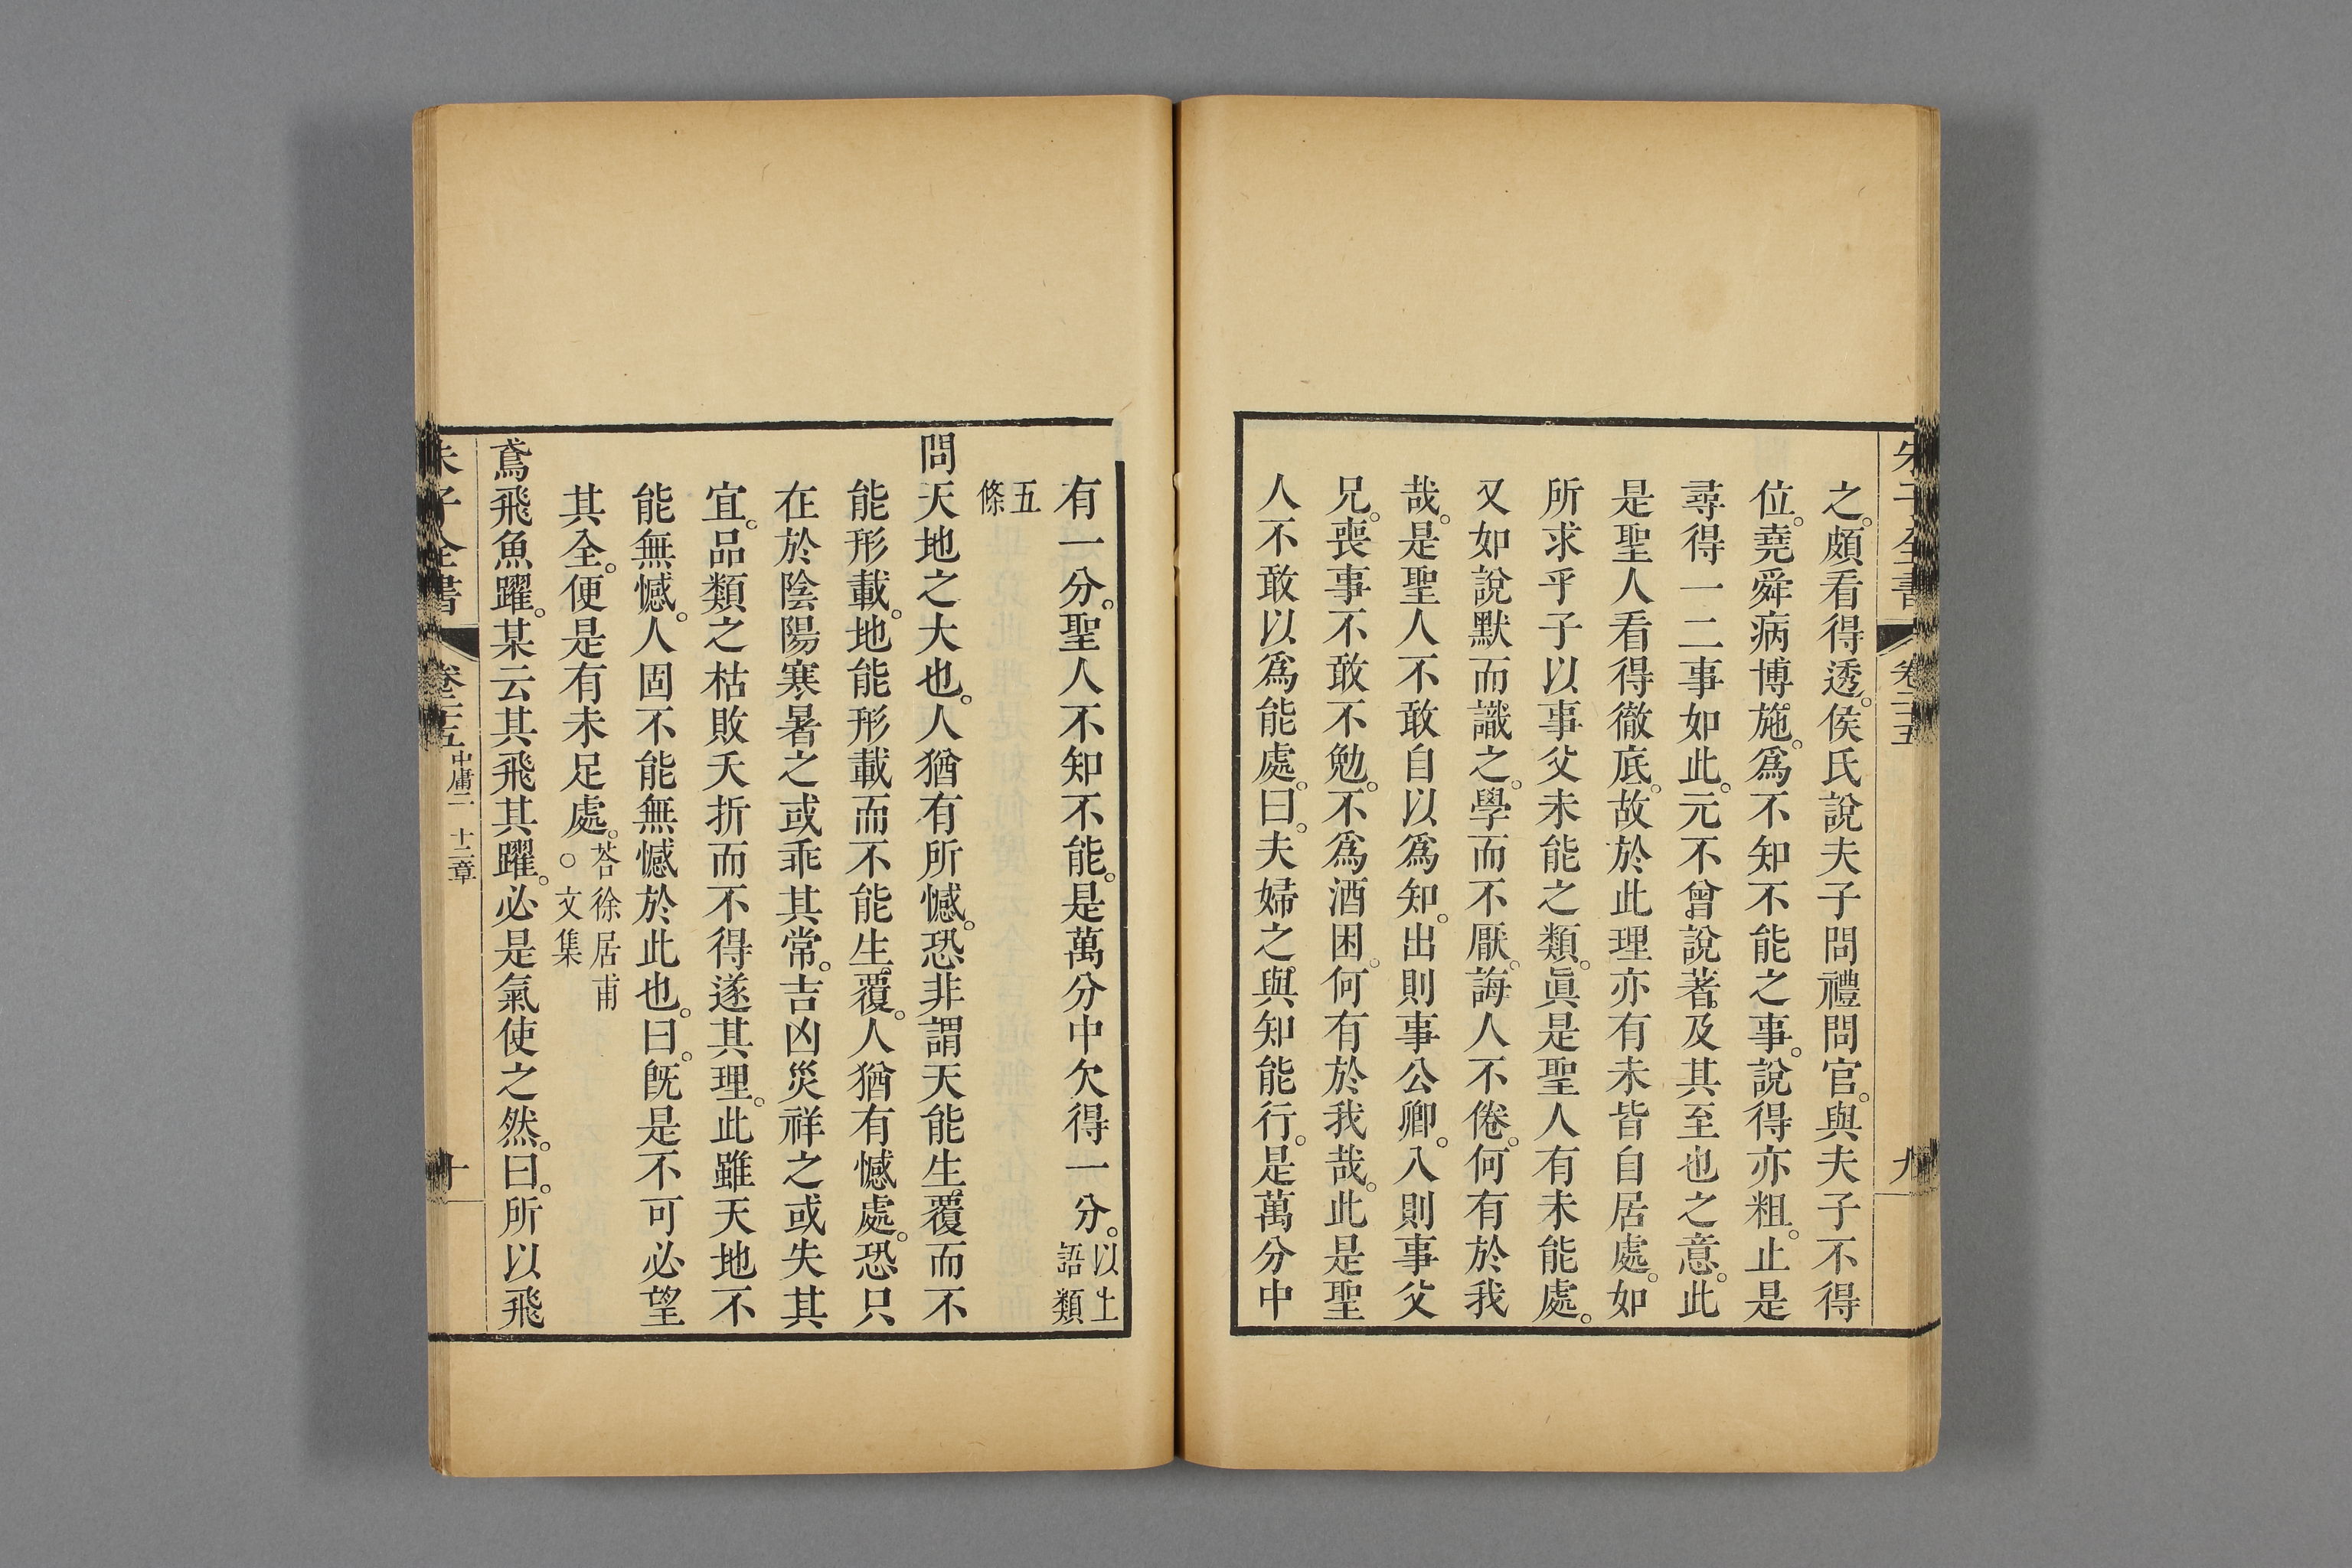 朱子全書 卷二十五 九
之。頗看得透。侯氏說夫子問禮問官。與夫子不得
位。堯舜病博施。爲不知不能之事。說得亦粗。止是
尋得一二事如此。元不曾說著及其至也之意。此
是聖人看得徹底。故於此理亦有未皆自居處。如
所求乎子以事父未能之類。眞是聖人有未能處。
又如說默而識之。學而不厭。誨人不倦。何有於我
哉。是聖人不敢自以爲知。出則事公卿。入則事父
兄。喪事不敢不勉。不爲酒困。何有於我哉。此是聖
人不敢以爲能處。曰。夫婦之與知能行。是萬分中
有一分。聖人不知不能。是萬分中欠得一分。以上語類
五條
問天地之大也。人猶有所憾。恐非謂天能生覆而不
能形載。地能形載而不能生覆。人猶有憾處。恐只
在於陰陽寒暑之或乖其常。吉凶災祥之或失其
宜。品類之枯敗夭折而不得遂其理。此雖天地不
能無憾。人固不能無憾於此也。曰。旣是不可必望
其全。便是有未足處。荅徐居甫○文集
鳶飛魚躍。某云其飛其躍。必是氣使之然。曰。所以飛
朱子全書 卷二十五 中庸二 十二章 十